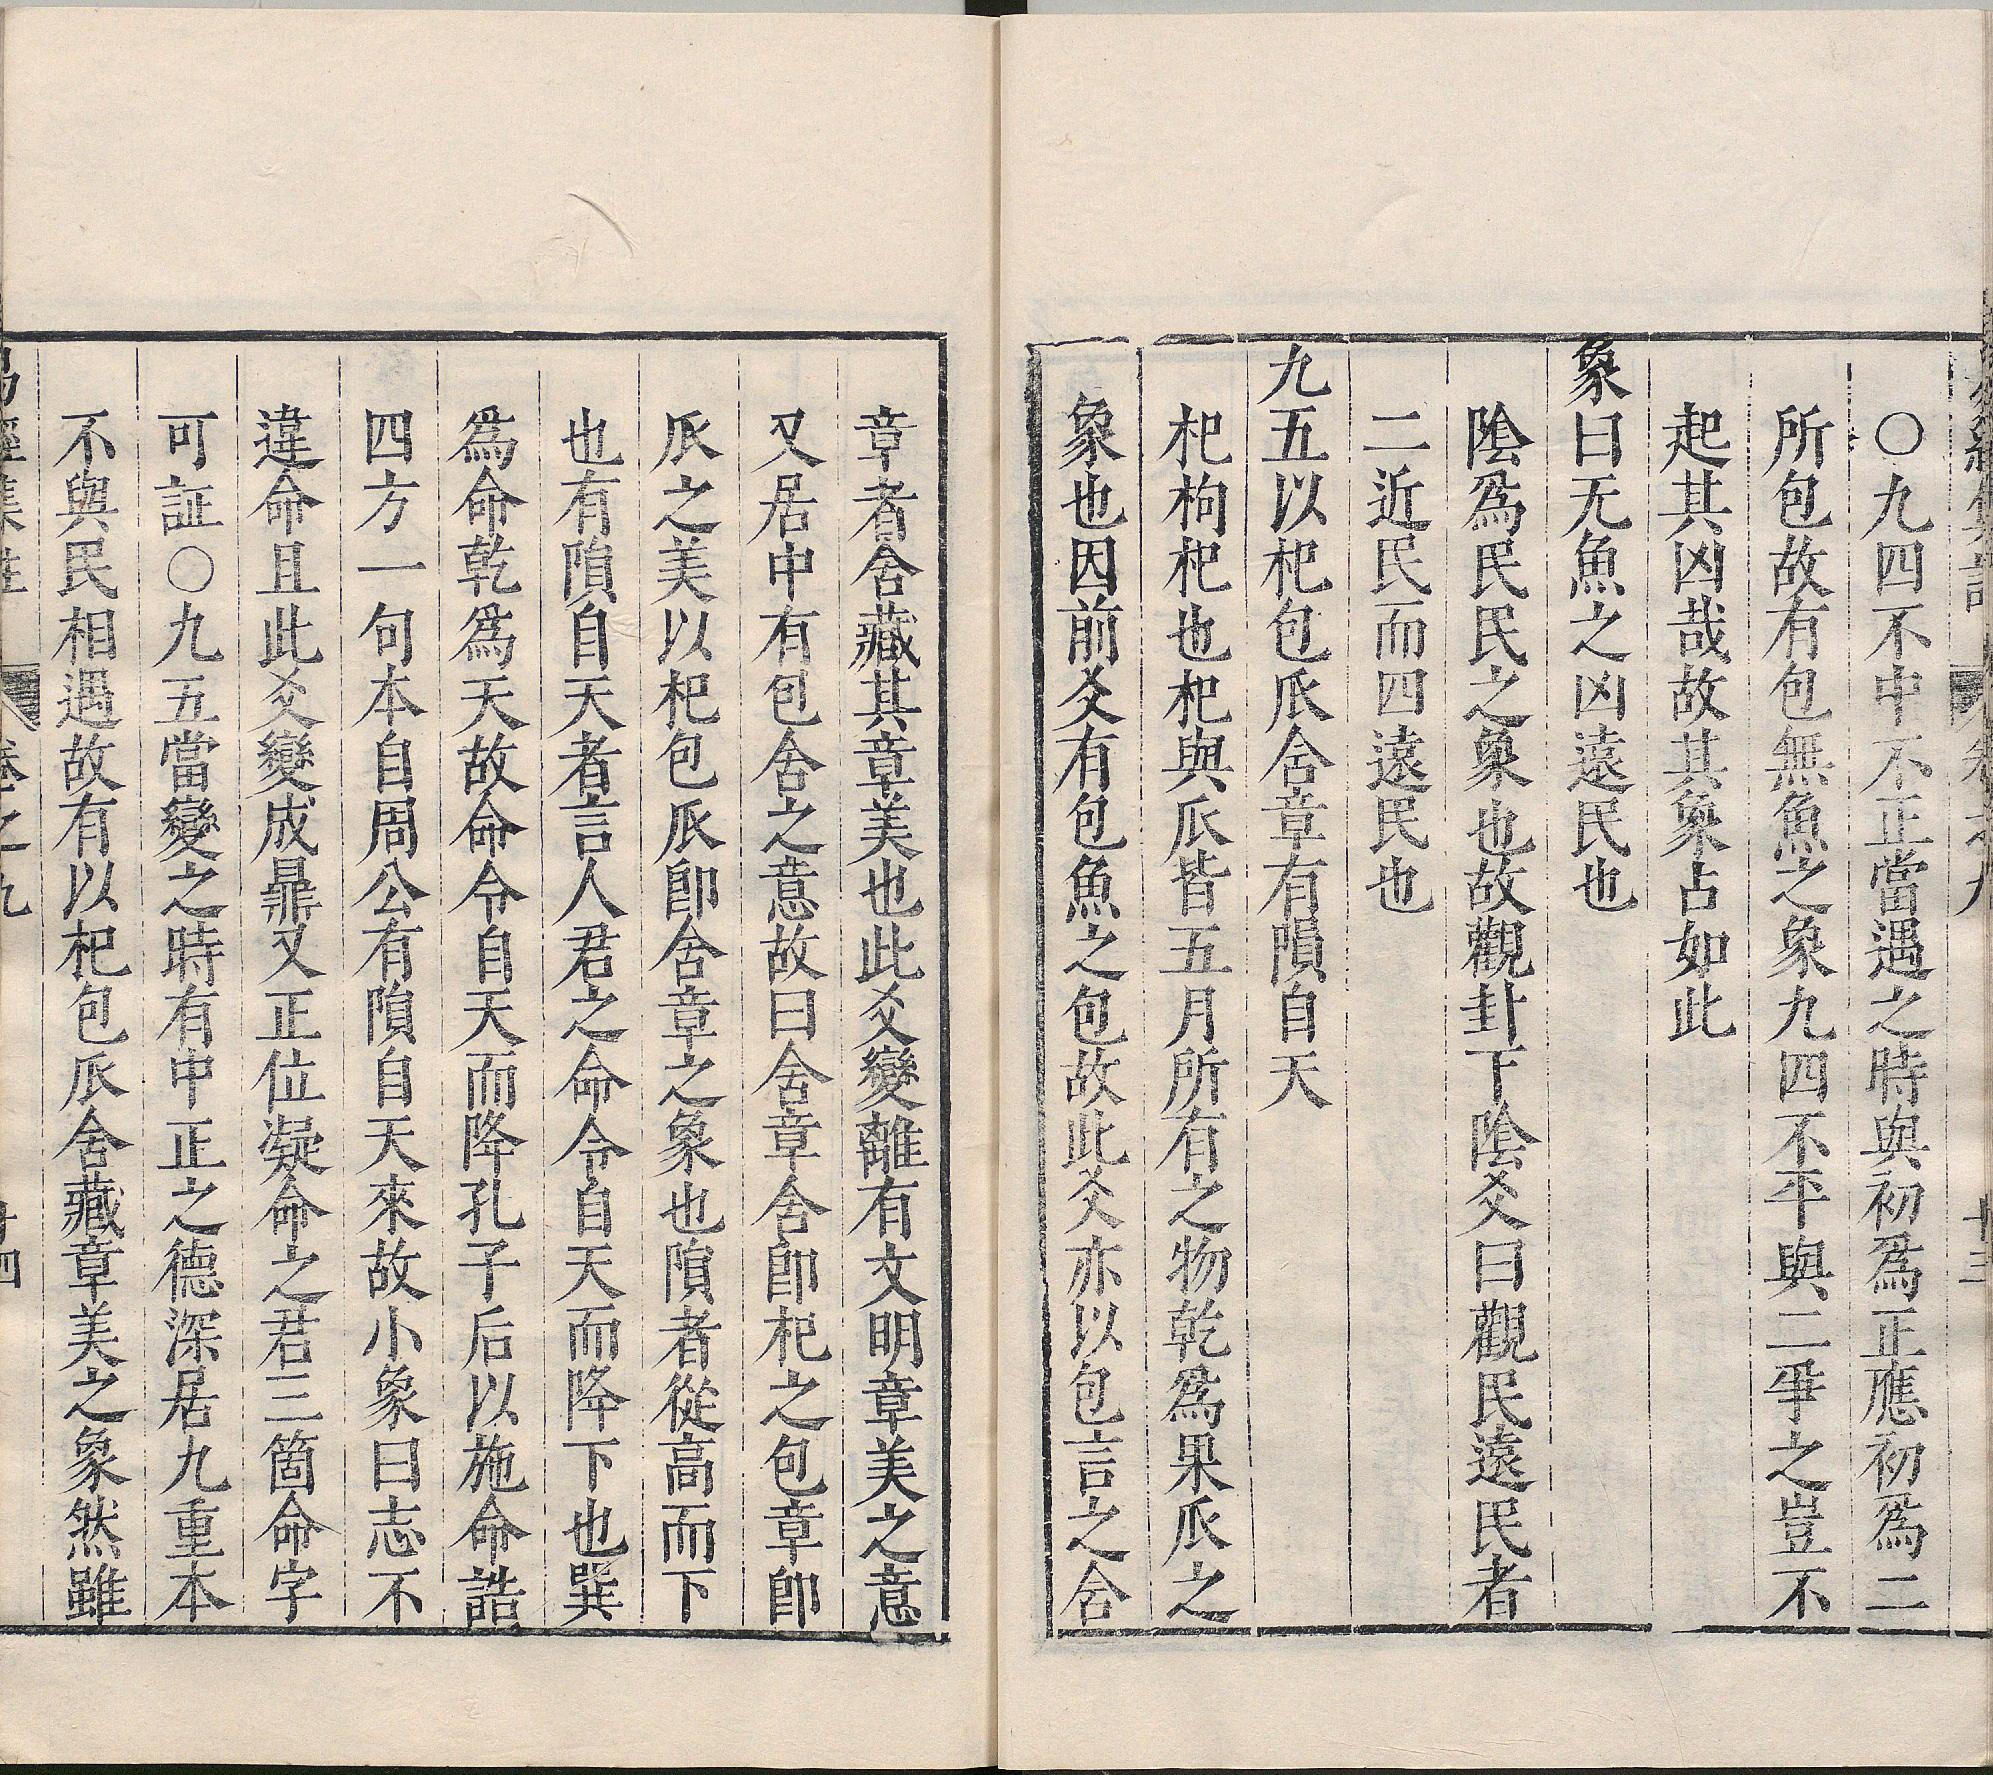 ○九四不中不正當遇之時與初爲正應初爲二
所包故有包無魚之象九四不平與二爭之豈不
起其凶哉故其象占如此
象曰无魚之凶遠民也
陰爲民民之象也故觀卦下陰爻曰觀民遠民者
二近民而四遠民也
九五以杞包瓜含章有隕自天
杞枸杞也杞與瓜皆五月所有之物乾爲果瓜之
象也因前爻有包魚之包故此爻亦以包言之含
章者含藏其章美也此爻變離有文明章美之意
又居中有包含之意故曰含章含卽杞之包章卽
瓜之美以杞包瓜卽含章之象也隕者從高而下
也有隕自天者言人君之命令自天而降下也巽
爲命乾爲天故命令自天而降孔子后以施命誥
四方一句本自周公有隕自天來故小象曰志不
違命且此爻變成鼎又正位凝命之君三箇命字
可証○九五當變之時有中正之德深居九重本
不與民相遇故有以杞包瓜含藏章美之象然雖
易經集註 卷之九 廿四